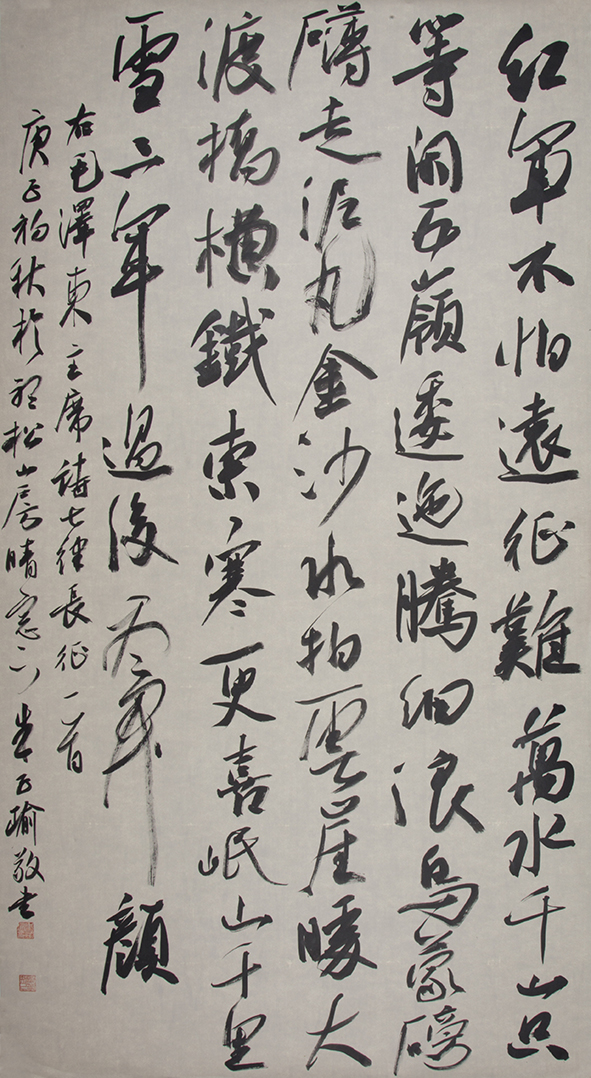 紅軍不怕遠征難萬水千山只
等閑五嶺逶迤騰細浪烏蒙磅
礴走泥丸金沙水拍雲崖暖大
渡橋橫鐵索寒更喜岷山千里
雪三軍過後盡開顔
右毛澤東主席詩七律長征一首
庚子初秋於松山房晴窗下子瑜敬書